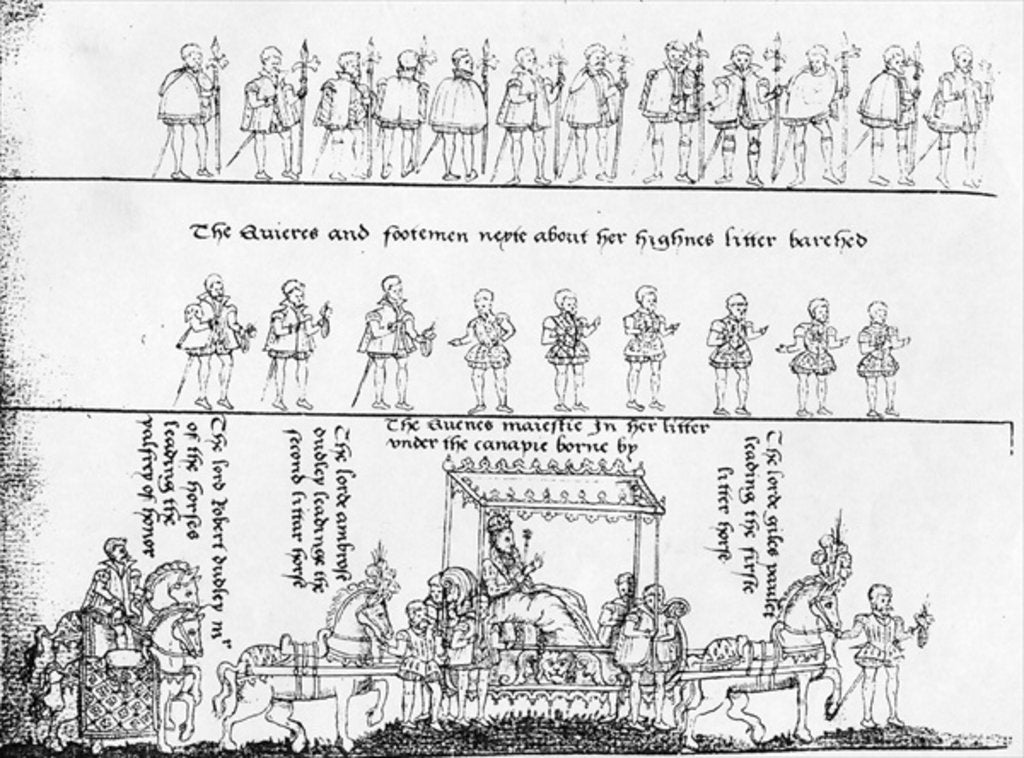 The Quieres and footemen nexte about her highnes litter barehed
The Quenes maiestie In her litter
vnder the canapie borne by
The lord Robert dudley mr
of the horses
leading the
palfrey of honor
The lorde ambrose
dudley leadange the
second littar horse
The lorde giles paulet
leading the firste
litter horse